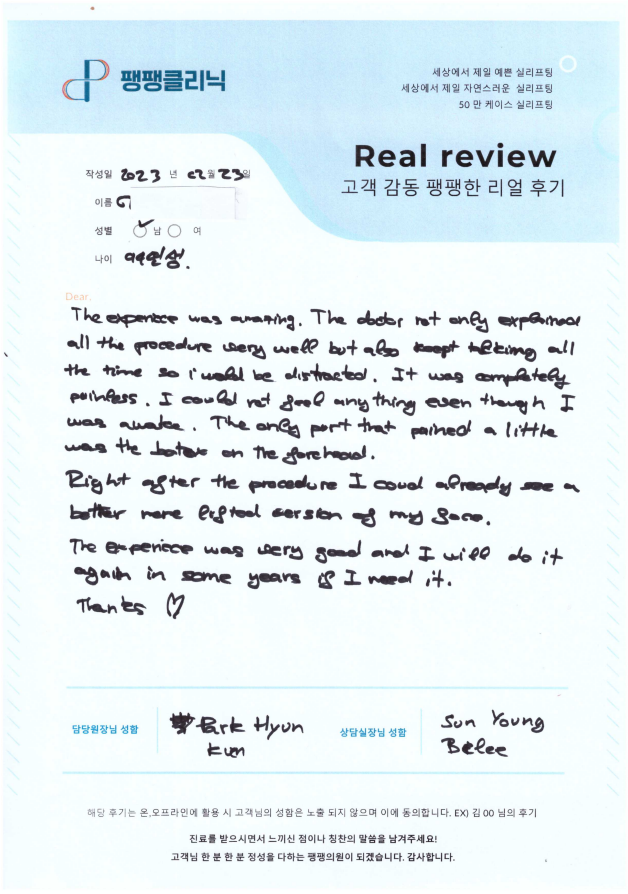 팽팽클리닉
세상에서 제일 예쁜 실리프팅
세상에서 제일 자연스러운 실리프팅
50 만 케이스 실리프팅
Real review
고객 감동 팽팽한 리얼 후기
작성일 2023 년 02 월 23 일
이름
성별 남 여
나이 94년생.
Dear.
The experiece was amazing. The doctor not only explained
all the procedure very well but also keept talking all
the time so i would be distracted. It was completely
painless. I could not feel anything even though I
was awake. The only part that pained a little
was the botox on the forehead.
Right after the procedure I coud already see a
better more lifted version of my face.
The experiece was very good and I will do it
again in some years if I need it.
Thanks ♡
담당원장님 성함 Park Hyun
Kun
상담실장님 성함 Sun Young
해당 후기는 온,오프라인에 활용 시 고객님의 성함은 노출 되지 않으며 이에 동의합니다. EX) 김 00 님의 후기
진료를 받으시면서 느끼신 점이나 칭찬의 말씀을 남겨주세요!
고객님 한 분 한 분 정성을 다하는 팽팽의원이 되겠습니다. 감사합니다.